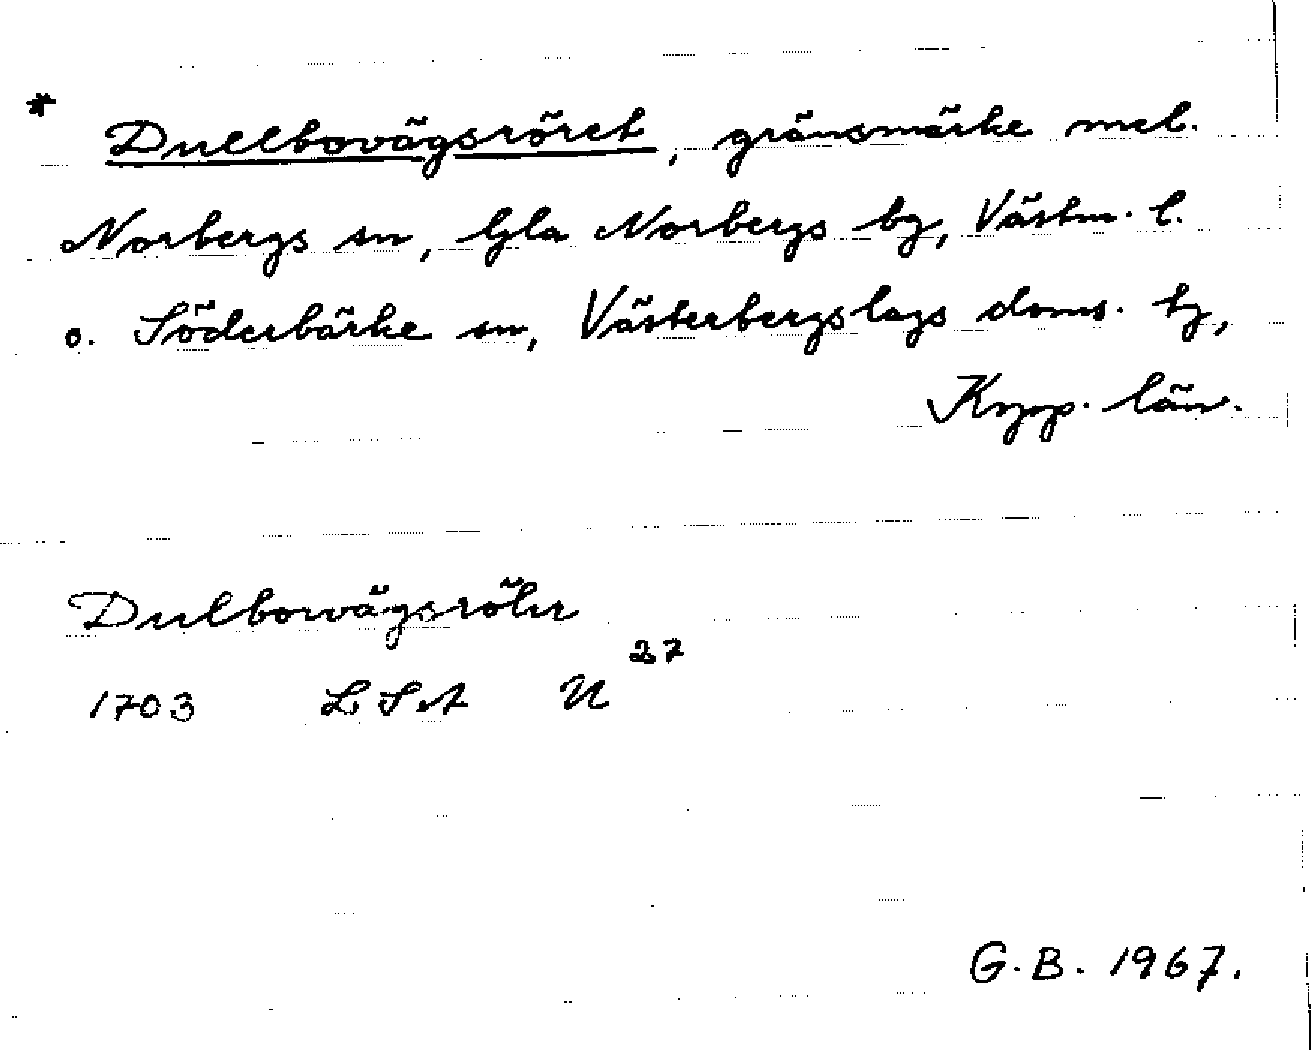 * Dullbovägsröret, gränsmärke mel.
Norbergs sn, Gla Norbergs bg, Västm. l.
o. Söderbärke sn, Västerbergslags doms. bg,
Kopp. län.
Dulbowägsröhr
1703 LSA U 27
G.B. 1967.